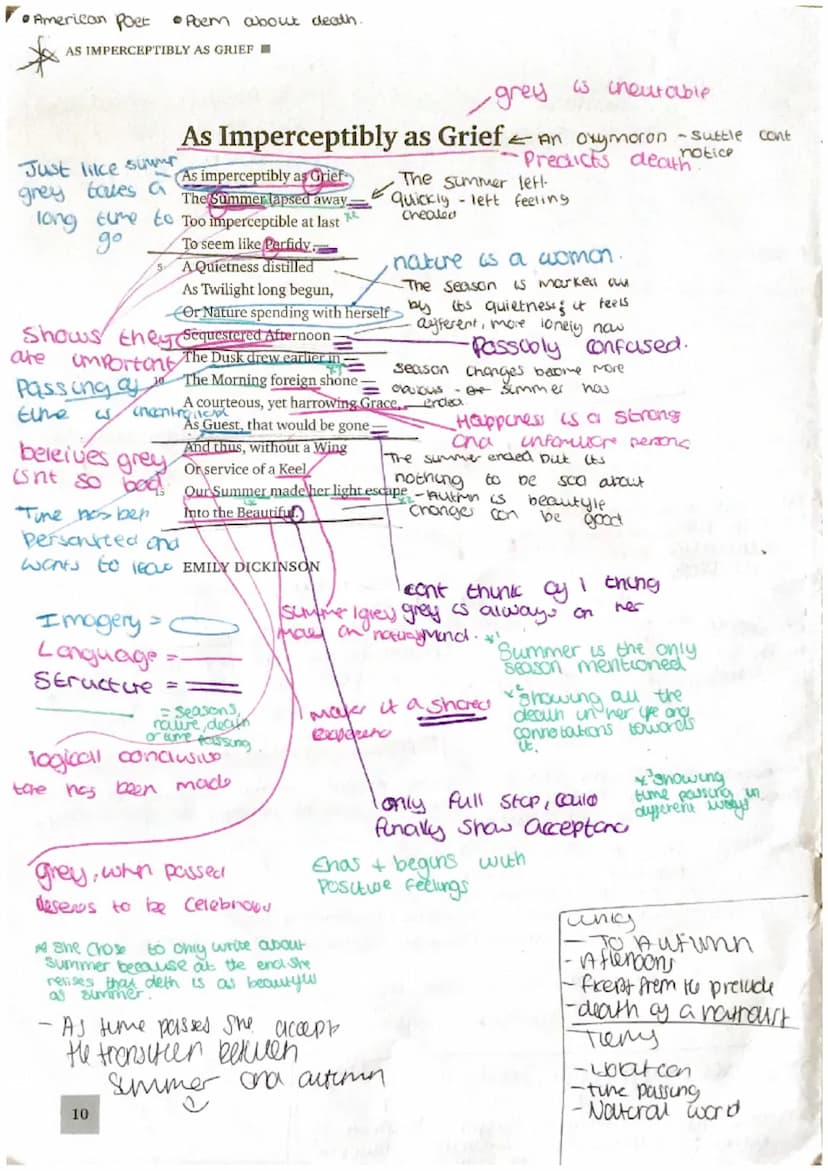 • American Poet • Poem about death.
AS IMPERCEPTIBLY AS GRIEF ■
grey is inevitable
As Imperceptibly as Grief
← An oxymoron - suttle cont notice
Predicts death.
Just like summer
grey takes a
long time to
go
As imperceptibly as Grief
The Summer lapsed away —
Too imperceptible at last
To seem like Perfidy —
5 A Quietness distilled
As Twilight long begun,
Or Nature spending with herself
Sequestered Afternoon —
The Dusk drew earlier in —
10 The Morning foreign shone —
A courteous, yet harrowing Grace,
As Guest, that would be gone —
And thus, without a Wing
Or service of a Keel
15 Our Summer made her light escape
Into the Beautiful.
EMILY DICKINSON
The summer left
quickly - left feeling
cheated
nature is a woman.
The season is marked out
by its quietness; it feels
different, more lonely now
Possably confused.
season
changes become more
obvious - summer has
ended
Happiness is a strong
and
The summer ended but its
nothing to be sad about
- Autmn is beautyle
changes can be good
Shows they
are important
Passing of
time is
beleives grey
isnt so bad
Time has ben
persontted and
wants to leave
cont think of 1 thing
grey is always on her
mind.
summer/grey
made an natural
Imagery =
Language =
Structure =
= seasons,
nature, death
or time passing
*1
Summer is the only
season mentioned
*2 showing all the
death in her life and
connotations towards
it.
*3 showing
time passing in
different ways
makes it a shared
experience
logical conclusive
tone has been made
only full stop, could
finally show acceptance
grey, when passed
deserves to be celebrated
Ends + begins with
positive feelings
* She chose to only write about
summer because at the end she
relises that deth is as beautyful
as summer.
- As time passes she accept
the transition between
summer and autumn
Links
- To Autumn
- Afternoons
- from the prelude
- death of a naturalist
- time passing
- Natural world
10